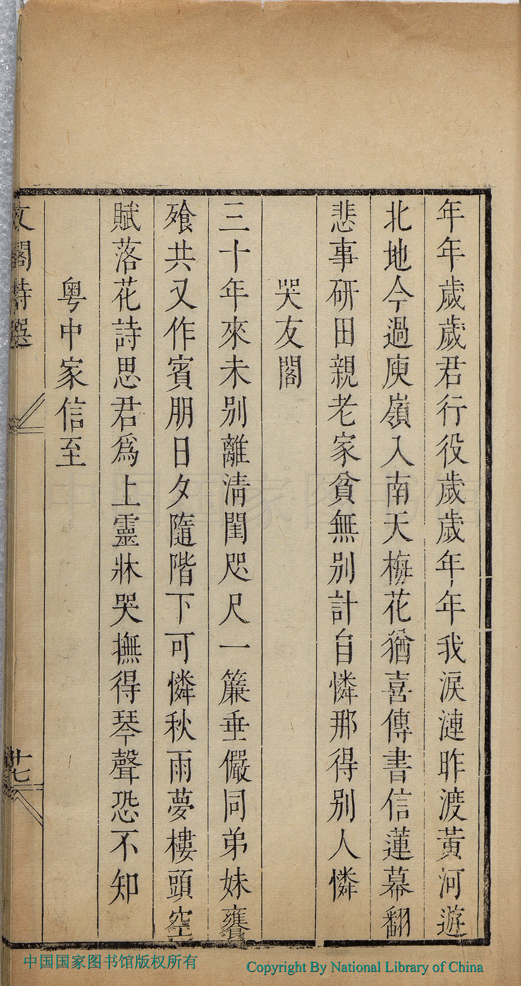 年年歲歲君行役歲歲年年我淚漣昨渡黃河遊
北地今過庾嶺入南天梅花猶喜傳書信蓮幕翻
悲事研田親老家貧無別計自憐那得別人憐
哭友閣
三十年來未別離淸閨咫尺一簾垂儼同弟妹饔
飱共又作賓朋日夕隨階下可憐秋雨夢樓頭空
賦落花詩思君爲上靈牀哭撫得琴聲恐不知
粤中家信至
十七
中国国家图书馆版权所有
Copyright By National Library of China